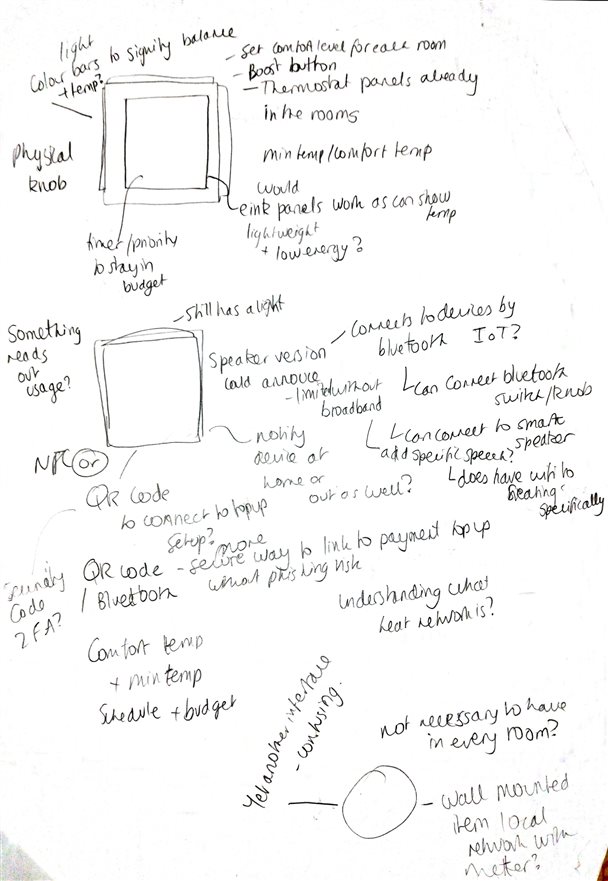 light
Colour bars to signify balance
+ temp?
Physical
knob
timer/priority
to stay in
budget
- Set comfort level for each room
- Boost button
- Thermostat panels already
in the rooms
min temp/comfort temp
would
eink panels work as can show
temp
lightweight
+ low energy?
Something
reads
out
usage?
- still has a light
Speaker version
could annouce
- limited without
broadband
connects to devices by
bluetooth IoT?
can connect bluetooth
switch/knob
can connect to smart
speaker
add specific speech?
does have info to
heating
specifically
notify
device at
home or
out as well?
NFC or
QR code
to connect to topup
setup?
Security
Code
2FA?
QR code - secure way to link to payment top up
more
/ Bluetooth without phishing risk
understanding what
heat network is?
Comfort temp
+ min temp
Schedule + budget
Yet another interface
- confusing.
not necessary to have
in every room?
- wall mounted
item local
network with
meter?